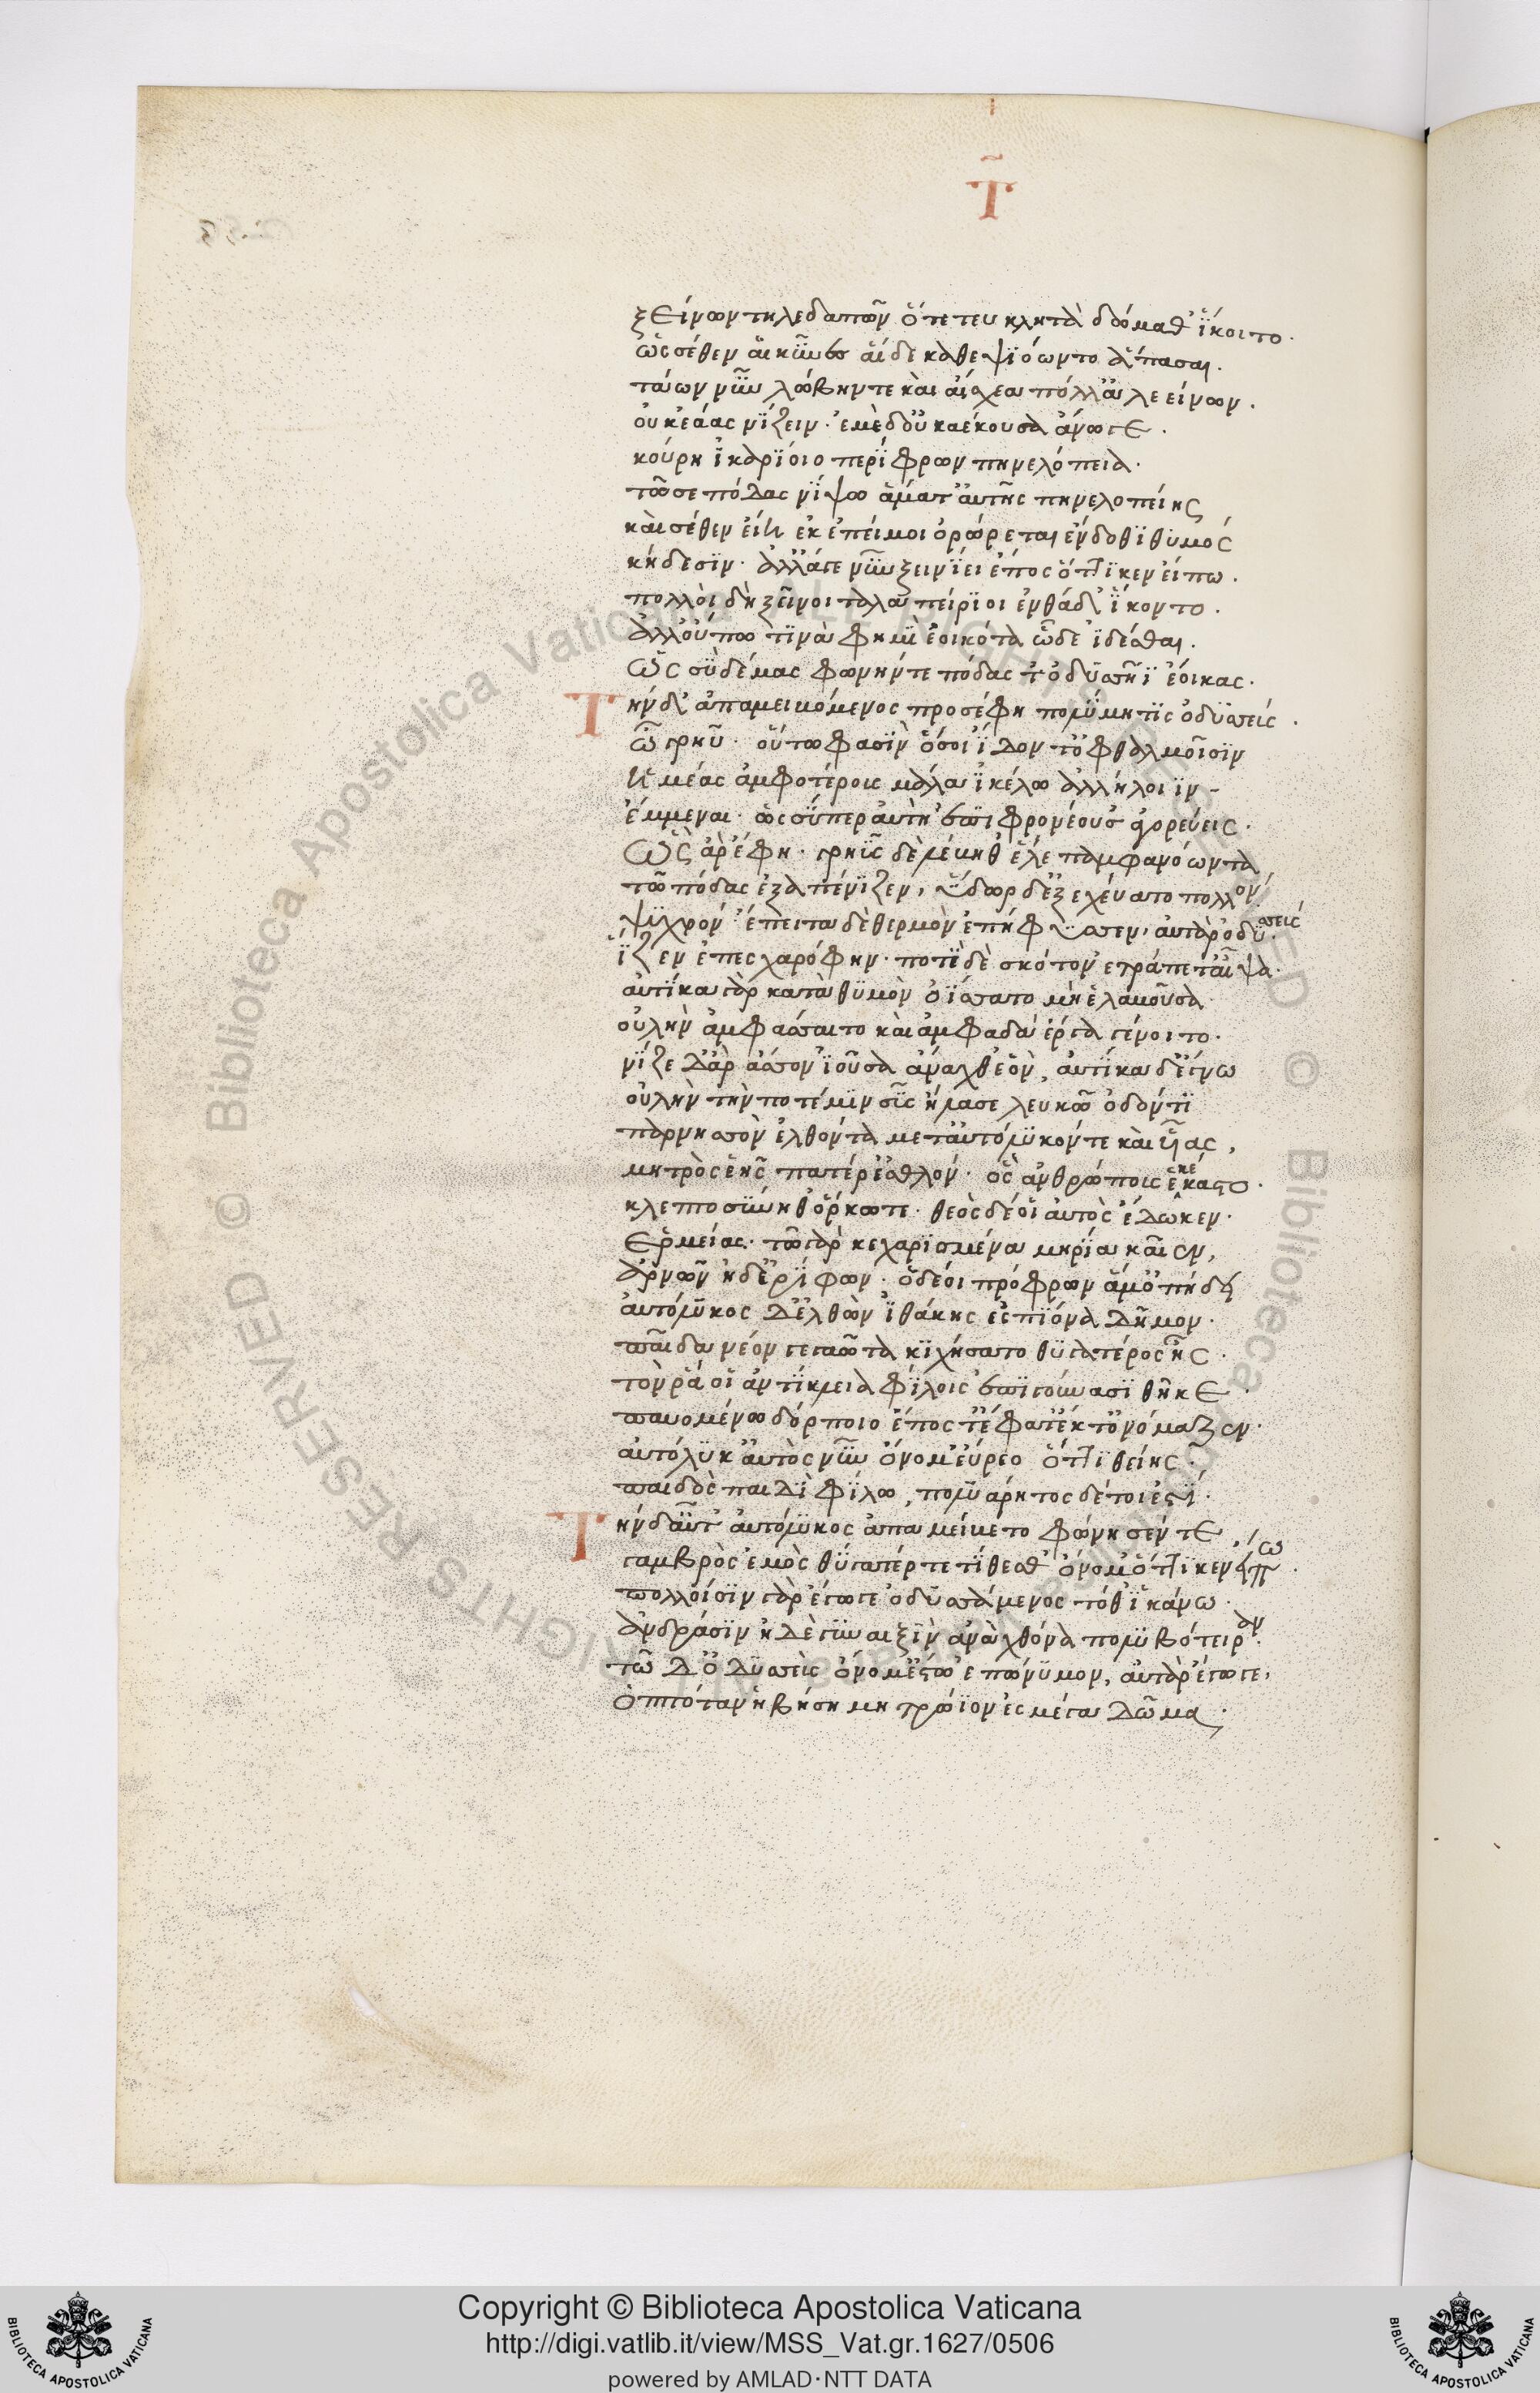 Τ
ξείνων τηλεδαπῶν ὅτε τευ κλητὰ δώμαθ' ἵκοιτο.
ὣς σέθεν αἱ κύνες αἵδε καθεψιόωνται ἅπασαι.
τάων νῦν λώβην τε καὶ αἴσχεα πόλλ' ἀλεείνων.
οὐκ ἐάας νίζειν· ἐμὲ δ' οὐκ ἀέκουσα ἄνωγε.
κούρη ἰκαρίοιο περίφρων πηνελόπεια.
τῶ σε πόδας νίψω ἅμα τ' αὐτῆς πηνελοπείης
καὶ σέθεν εἵνεκ' ἐπεί μοι ὀρώρεται ἔνδοθι θυμός
κήδεσιν· ἀλλ' ἄγε νῦν ξυνίει ἔπος ὅττί κεν εἴπω.
πολλοὶ δὴ ξεῖνοι ταλαπείριοι ἐνθάδ' ἵκοντο.
ἀλλ' οὔπω τινὰ φημὶ ἐοικότα ὧδε ἰδέσθαι.
ὡς σὺ δέμας φωνήν τε πόδας τ' ὀδυσσῆϊ ἔοικας.
Τὴν δ' ἀπαμειβόμενος προσέφη πολύμητις ὀδυσσεύς.
ὦ γρηῦ· οὕτω φασὶν ὅσοι ἴδον τ' ὀφθαλμοῖσιν
ἡμέας ἀμφοτέρους μάλα ἰκέλω ἀλλήλοιιν
ἔμμεναι· ὡς σύ περ αὐτὴ ἐπιφρονέουσ' ἀγορεύεις.
Ὣς ἄρ' ἔφη· γρηῢς δὲ λέβηθ' ἕλε παμφανόωντα
τῶ πόδας ἐξαπένιζεν, ὕδωρ δ' ἐξεχέυατο πολλόν
ψυχρόν· ἔπειτα δὲ θερμὸν ἐπήφυσεν· αὐτὰρ ὀδυσσεύς.
ἷζεν ἐπ' ἐσχαρόφιν· ποτὶ δὲ σκότον ἐτράπετ' αἶψα.
αὐτίκα γὰρ κατὰ θυμὸν ὀΐσατο μή ἑ λαβοῦσα
οὐλὴν ἀμφάσσαιτο καὶ ἀμφαδὰ ἔργα γένοιτο.
νίζε δ' ἄρ' ἆσσον ἰοῦσα ἄναχθ' ἑόν, αὐτίκα δ' ἔγνω
οὐλὴν τήν ποτέ μιν σῦς ἤλασε λευκῶ ὀδόντι
παρνησσὸν ἐλθόντα μετ' αὐτόλυκόν τε καὶ υἷας,
μητρὸς ἑῆς πατέρ' ἐσθλόν· ὃς ἀνθρώπους ἐκέκαστο.
κλεπτοσύνη θ' ὅρκω τε. θεὸς δέ οἱ αὐτὸς ἔδωκεν.
Ἑρμείας· τῶ γὰρ κεχαρισμένα μηρία καῖεν,
ἀρνῶν ἠδ' ἐρίφων· ὁ δέ οἱ πρόφρων ἅμ' ὀπήδει
αὐτόλυκος δ' ἐλθὼν ἰθάκης ἐς πίονα δῆμον.
παῖδα νέον γεγαῶτα κιχήσατο θυγατέρος ἧς.
τόν ῥά οἱ εὐρύκλεια φίλοις ἐπὶ γούνασι θῆκε.
παυομένω δόρποιο ἔπος τ' ἔφατ' ἔκ τ' ὀνόμαζεν.
αὐτόλυκ' αὐτὸς νῦν ὄνομ' εὕρεο ὅττι θείης.
παιδὸς παιδὶ φίλω, πολυάρητος δέ τοι ἐστί.
Τὴν δ' αὖτ' αὐτόλυκος ἀπαμείβετο φώνησέν τε
γαμβρὸς ἐμὸς θυγάτερ τε τίθεσθ' ὄνομ' ὅττί κεν εἴπω.
πολλοῖσιν γὰρ ἔγωγε ὀδυσσάμενος τόδ' ἱκάνω.
ἀνδράσιν ἠδὲ γυναιξὶν ἀνὰ χθόνα πολυβότειραν.
τῶ δ' ὀδυσσεὺς ὄνομ' ἔστω ἐπώνυμον, αὐτὰρ ἔγωγε,
ὁππόταν ἡβήση μητρώϊον ἐς μέγα δῶμα.
© Biblioteca Apostolica Vaticana ALL RIGHTS RESERVED © Biblioteca Apostolica Vaticana ALL RIGHTS RESERVED
Copyright © Biblioteca Apostolica Vaticana
http://digi.vatlib.it/view/MSS_Vat.gr.1627/0506
powered by AMLAD·NTT DATA
BIBLIOTECA APOSTOLICA VATICANA
BIBLIOTECA APOSTOLICA VATICANA